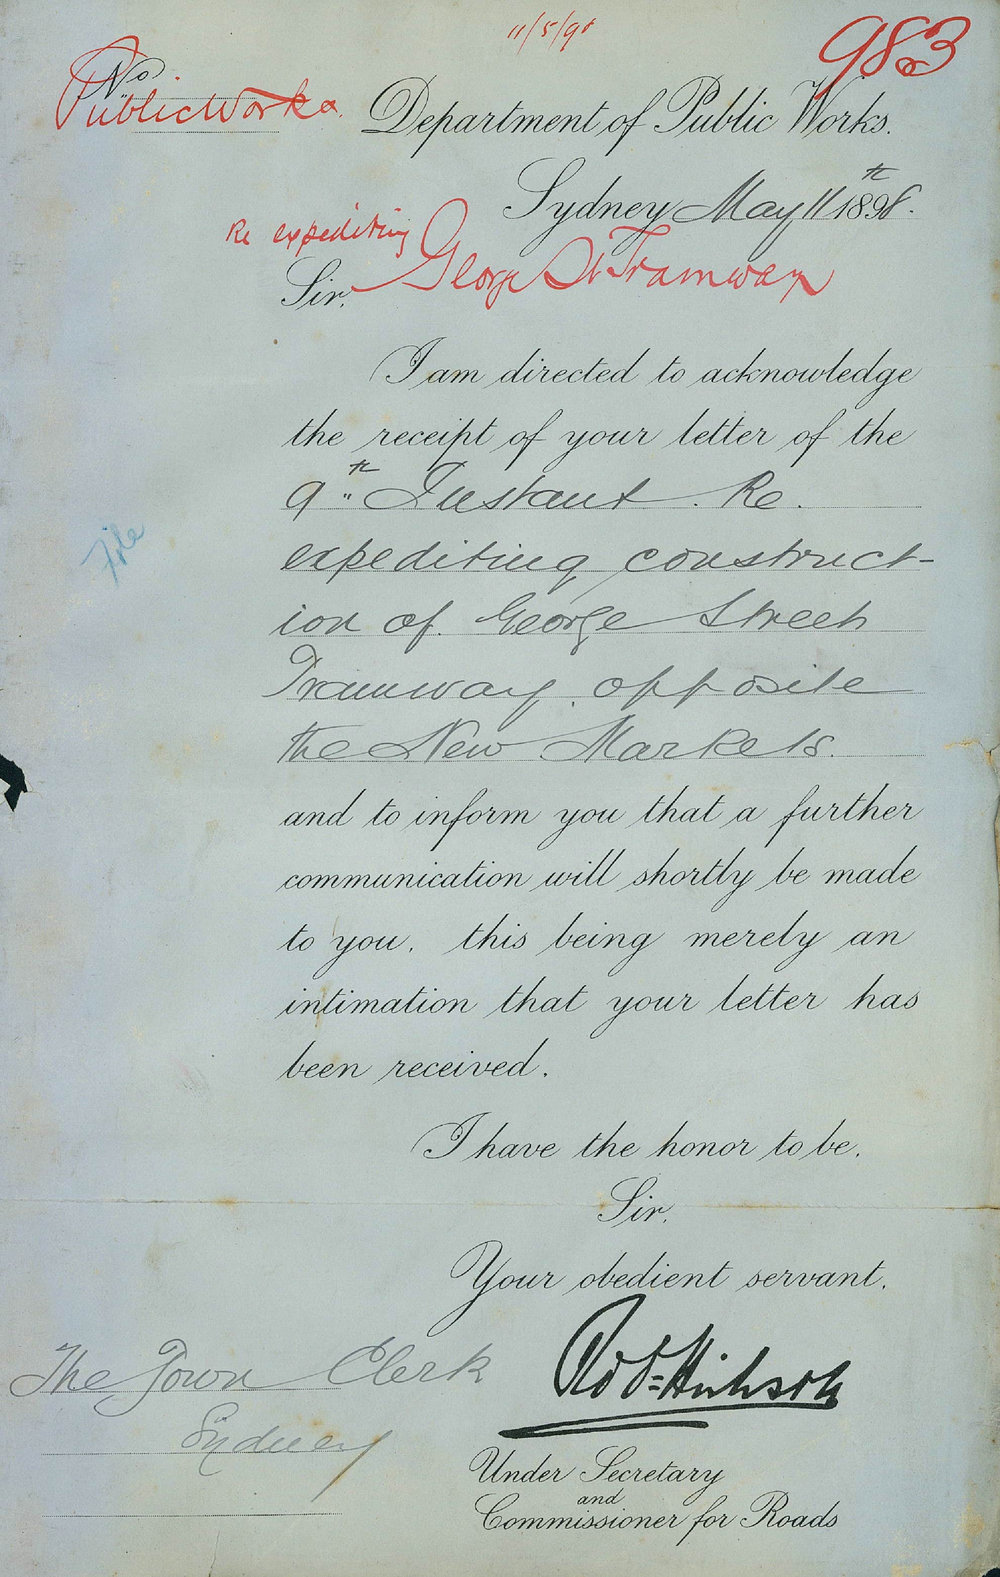 11/5/98
983
No
Public Works
Department of Public Works.
Sydney May 11th 1898.
Re expediting
George St Tramway
Sir,
I am directed to acknowledge
the receipt of your letter of the
9th Instant. Re.
expediting construct-
ion of George Street
Tramway, opposite
the New Markets.
and to inform you that a further
communication will shortly be made
to you, this being merely an
intimation that your letter has
been received.
File
I have the honor to be,
Sir,
Your obedient servant,
Robt Hickson
The Town Clerk
Sydney
Under Secretary
and
Commissioner for Roads